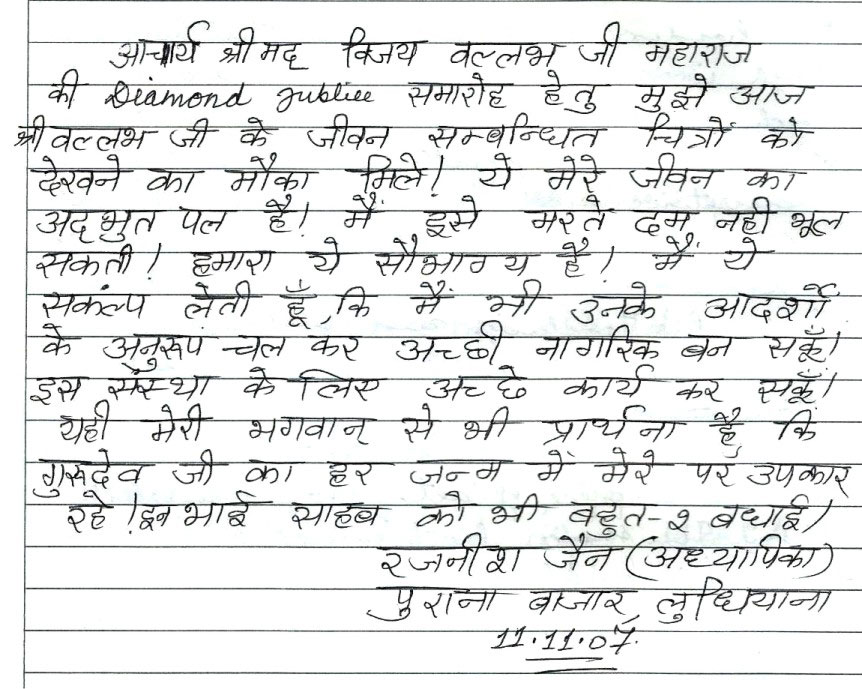 आचार्य श्रीमद् विजय वल्लभ जी महाराज
की Diamond Jubliee समारोह हेतु मुझे आज
श्री वल्लभ जी के जीवन सम्बन्धित चित्रों को
देखने का मौका मिले! ये मेरे जीवन का
अद्भुत पल है! मैं इसे मरते दम नही भूल
सकती! हमारा ये सौभाग्य है! मैं ये
सकंल्प लेती हूँ, कि मैं भी उनके आदर्शों
के अनुरूप चल कर अच्छी नागरिक बन सकूँ!
इस संस्था के लिए अच्छे कार्य कर सकूँ!
यही मेरी भगवान् से भी प्रार्थना है, कि
गुरूदेव जी का हर जन्म में मेरे पर उपकार
रहे! इन भाई साहब को भी बहुत-२ बधाई!
रजनीश जैन (अध्यापिका)
पुराना बाजार, लुधियाना
11.11.07.